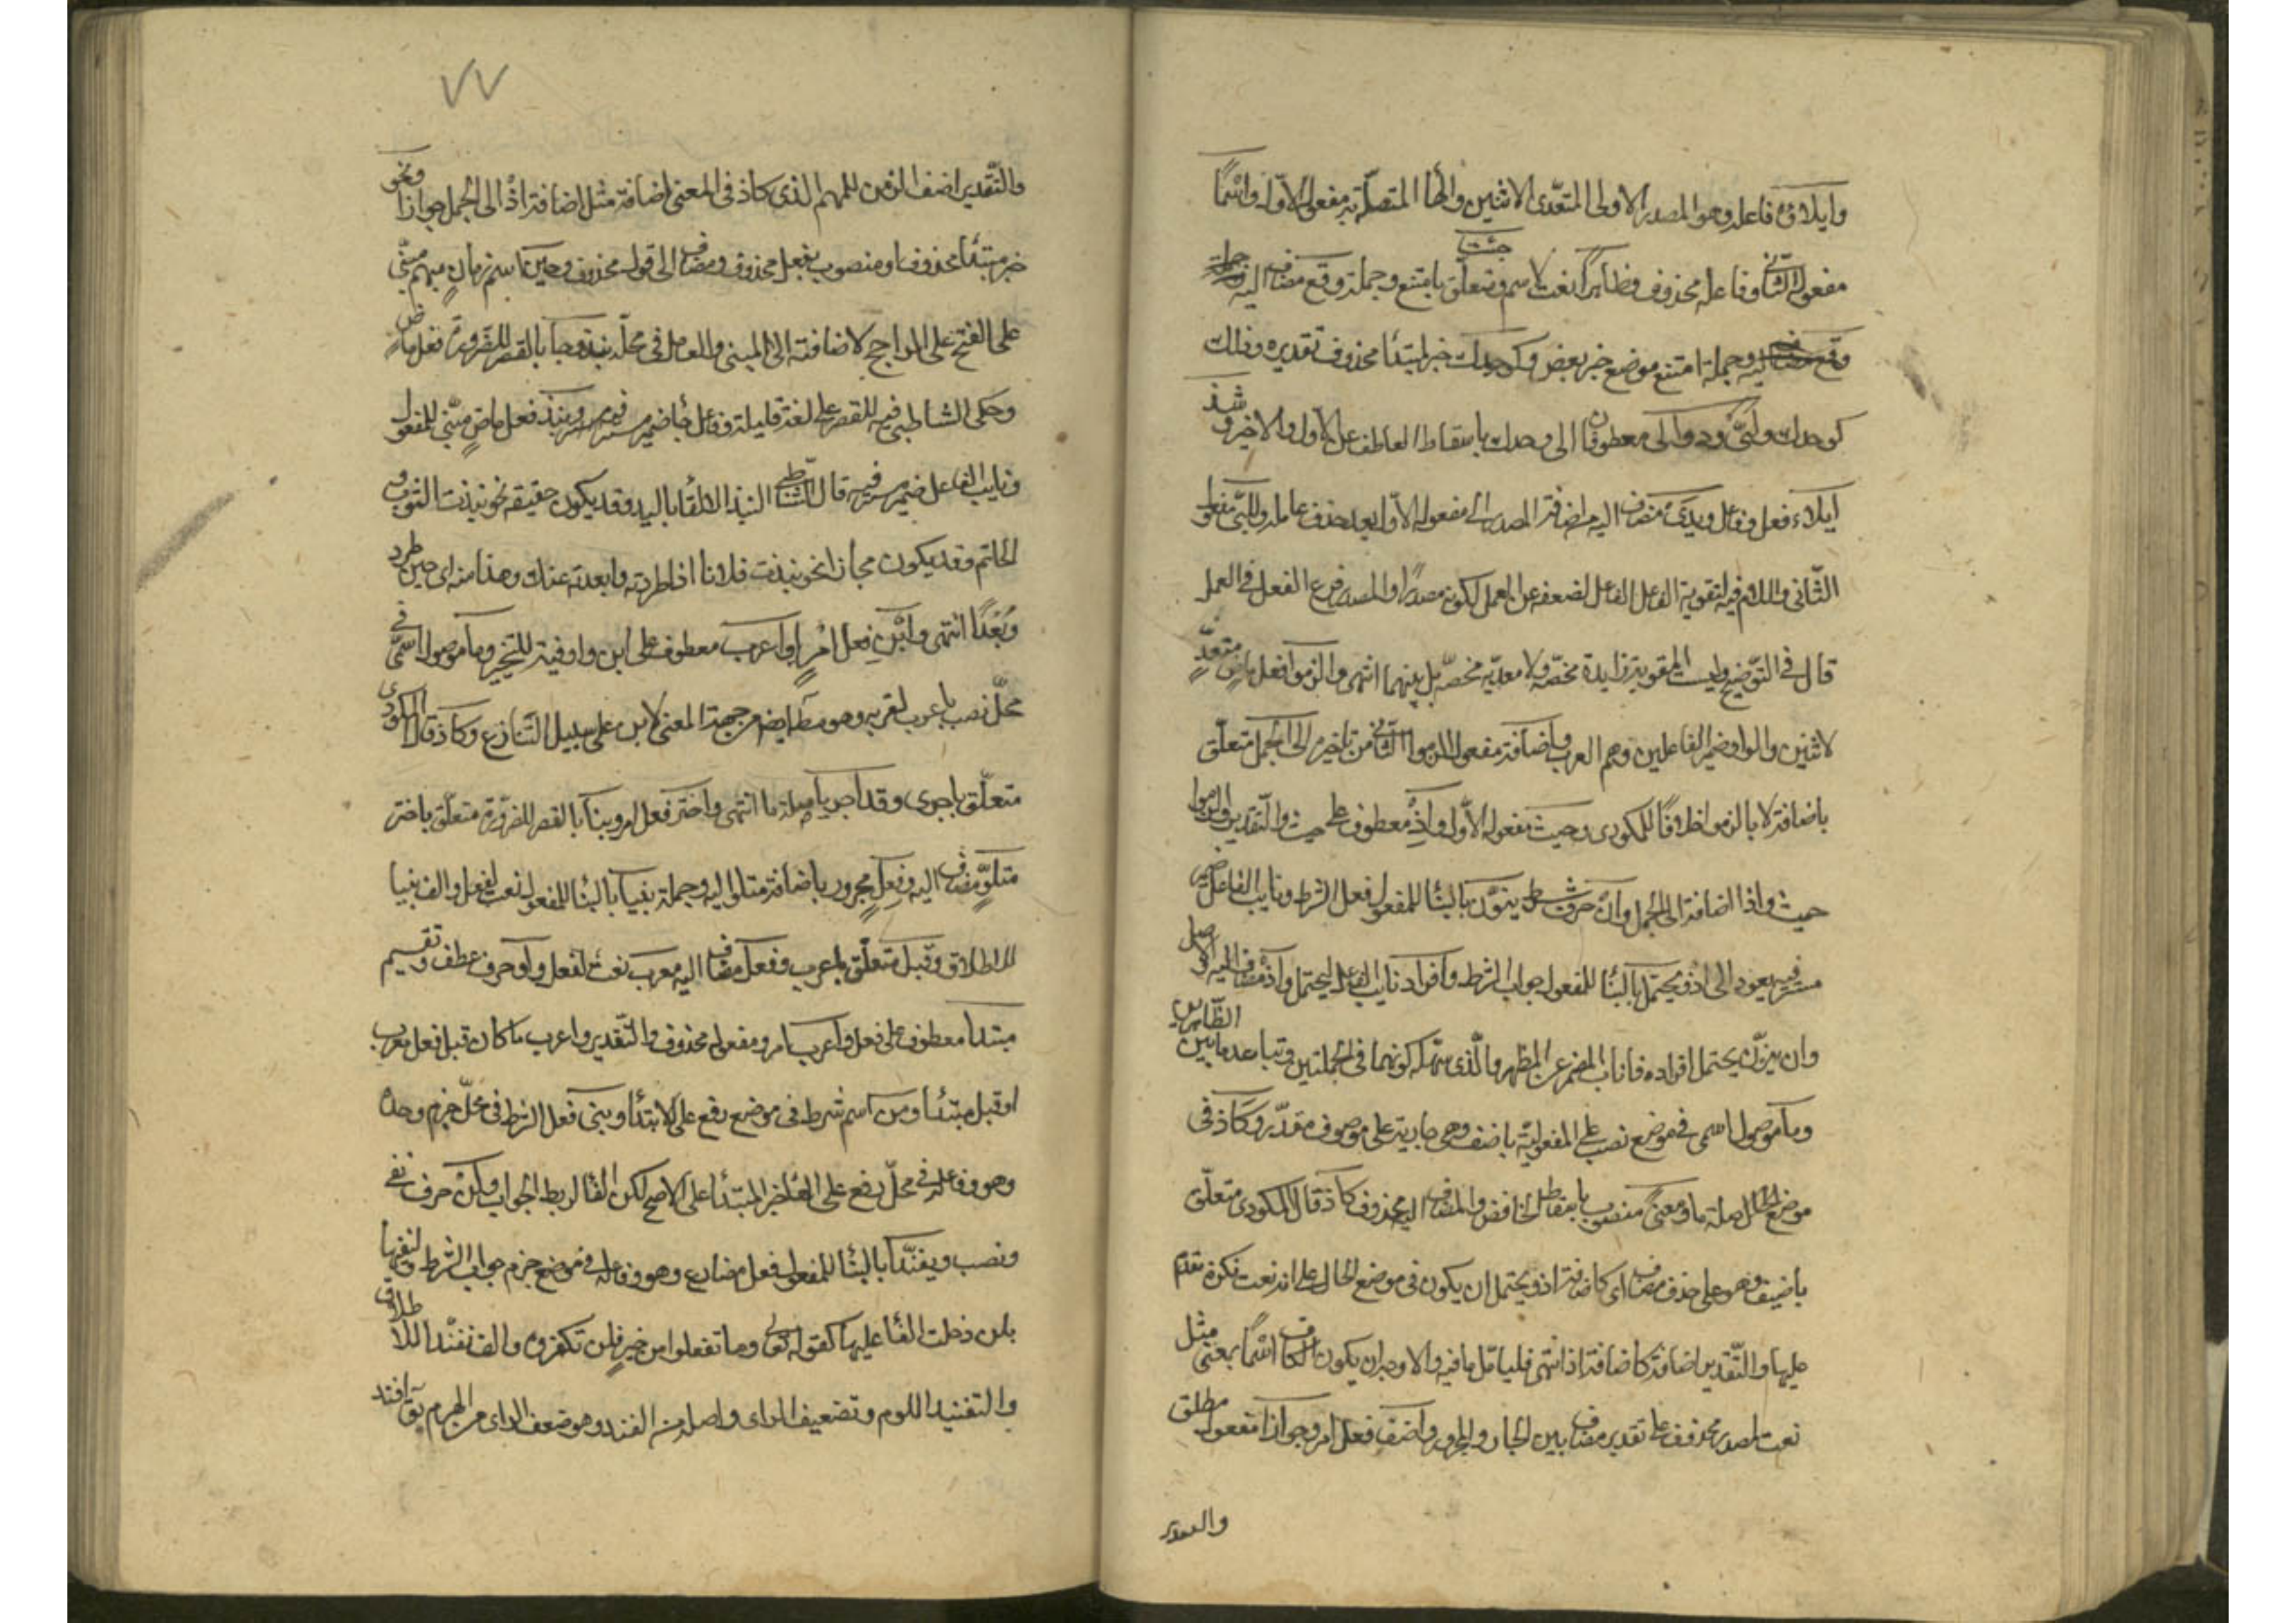 وايلاؤه فاعله وهو المصدر الاولى المتعدى لاثنين والهاء المتصلة به مفعوله الاول واسما
مفعوله الثانى وفاعله محذوف وظاهرا نعت لاسم ومتعلق بامتنع وجملة وقع مضاف اليه حيث جملة
وقع اليه وجملة امتنع موضع خبر بعض وكوحدك خبر لمبتدا محذوف تقديره وذلك
كوحدك ولبى ودوالى معطوفان الى وحدك باسقاط العاطف على الاول والاخير وشذ
ايلاء فعل وفاعل ويدى مضاف اليه من اضافة المصدر الى مفعوله الاول بعد حذف فاعله وللبى مفعوله
الثانى واللام فيه لتقوية الفاعل لضعفه عن العمل لكونه مصدرا والمصدر فرع الفعل فى العمل
قال فى التوضيح وليست المقوية زايدة محضة ولا معدية محضة بل بينهما انتهى والزموا فعل ماض متعد
لاثنين والواو ضمير الفاعلين وهم العرب واضافة مفعول الزموا الثانى من تاخير الى الجمل متعلق
باضافة لا بالزموا خلافا للمكودى وحيث مفعوله الاول واذ معطوف على حيث والتقدير والزموا
حيث واذ اضافة الى الجمل وان حرف شرط ينون بالبنا للمفعول فعل الشرط ونايب الفاعل ضمير
مستتر فيه يعود الى اذ ويحتمل بالبنا للمفعول جواب الشرط وافراد نايب الفاعل ليحتمل واذ مضاف اليه والاصل
وان ينون يحتمل افراده فاناب المضمر عن المظهر والذى سهله كونهما فى الجملتين وتباعد ما بين الظاهرين
وما موصول اسمى فى موضع نصب على المفعولية باضف وهى جارية على موصوف مقدر وكاذ فى
موضع الحال صلة ما ومعنى منصوب باسقاط الخافض والمضاف اليه محذوف كاذ قال المكودى متعلق
باضيف وهو على حذف مضاف اى كاضافة اذ ويحتمل ان يكون فى موضع الحال على انه نعت نكرة تقدم
عليها والتقدير اضافة كاضافة اذ انتهى فليتامل ما فيه والاوجه ان يكون الكاف اسما بمعنى مثل
نعت لمصدر محذوف على تقدير مضاف بين الجار والمجرور واضف فعل امر وجوازا مفعول مطلق
والتقدير
٧٧
والتقدير اضف الزمن المبهم الذى كاذ فى المعنى اضافة مثل اضافة اذ الى الجمل جوازا ونحو
خبر مبتدا محذوف او منصوب بفعل محذوف ومضاف الى قول محذوف وحين اسم زمان مبهم مبنى
على الفتح على الراجح لاضافته الى المبنى والعامل فى محله نبذ وجا بالقصر للضرورة فعل ماض
وحكى الشاطبى فيه القصر على لغة قليلة وفاعل جا ضمير مستتر فيه ونبذ فعل ماض مبنى للمفعول
ونايب الفاعل ضمير مستتر فيه قال الشاطبى النبذ الالقا باليد وقد يكون حقيقة نحو نبذت الثوب و
الخاتم وقد يكون مجازا نحو نبذت فلانا اذا طردته وابعدته عنك وهذا منه اى حين طرد
وبعدا انتهى وابن فعل امر او اعرب معطوف على ابن واو فيه للتخيير وما موصول اسمى فى
محل نصب باعرب لقربه وهو مطلوب ايضا من جهة المعنى لابن على سبيل التنازع وكاذ قال المكودى
متعلق باجرى وقد اجريا صلة ما انتهى واختر فعل امر وبنا بالقصر للضرورة متعلق باختر
متلو مضاف اليه وفعل مجرور باضافة متلو اليه وجملة بنيا بالبنا للمفعول نعت لفعل والف بنيا
للاطلاق وقبل متعلق باعرب وفعل مضاف اليه معرب نعت لفعل واو حرف عطف وتقسيم
مبتدا معطوف على فعل واعرب امر ومفعوله محذوف والتقدير واعرب ما كان قبل فعل معرب
او قبل مبتدا ومن اسم شرط فى موضع رفع على الابتدا وبنى فعل الشرط فى محل جزم وحده
وهو وفاعله فى محل رفع على انها خبر المبتدا على الاصح لكن الفا لربط الجواب ولن حرف نفى
ونصب ويفندا بالبنا للمفعول فعل مضارع وهو وفاعله فى موضع جزم جواب الشرط ولنفيها
بلن دخلت الفا عليها كقوله تعالى وما تفعلوا من خير فلن تكفروه والف تفندا للاطلاق
والتفنيد اللوم وتضعيف الراى واصله من الفند وهو ضعف الراى من الهرم يق افند